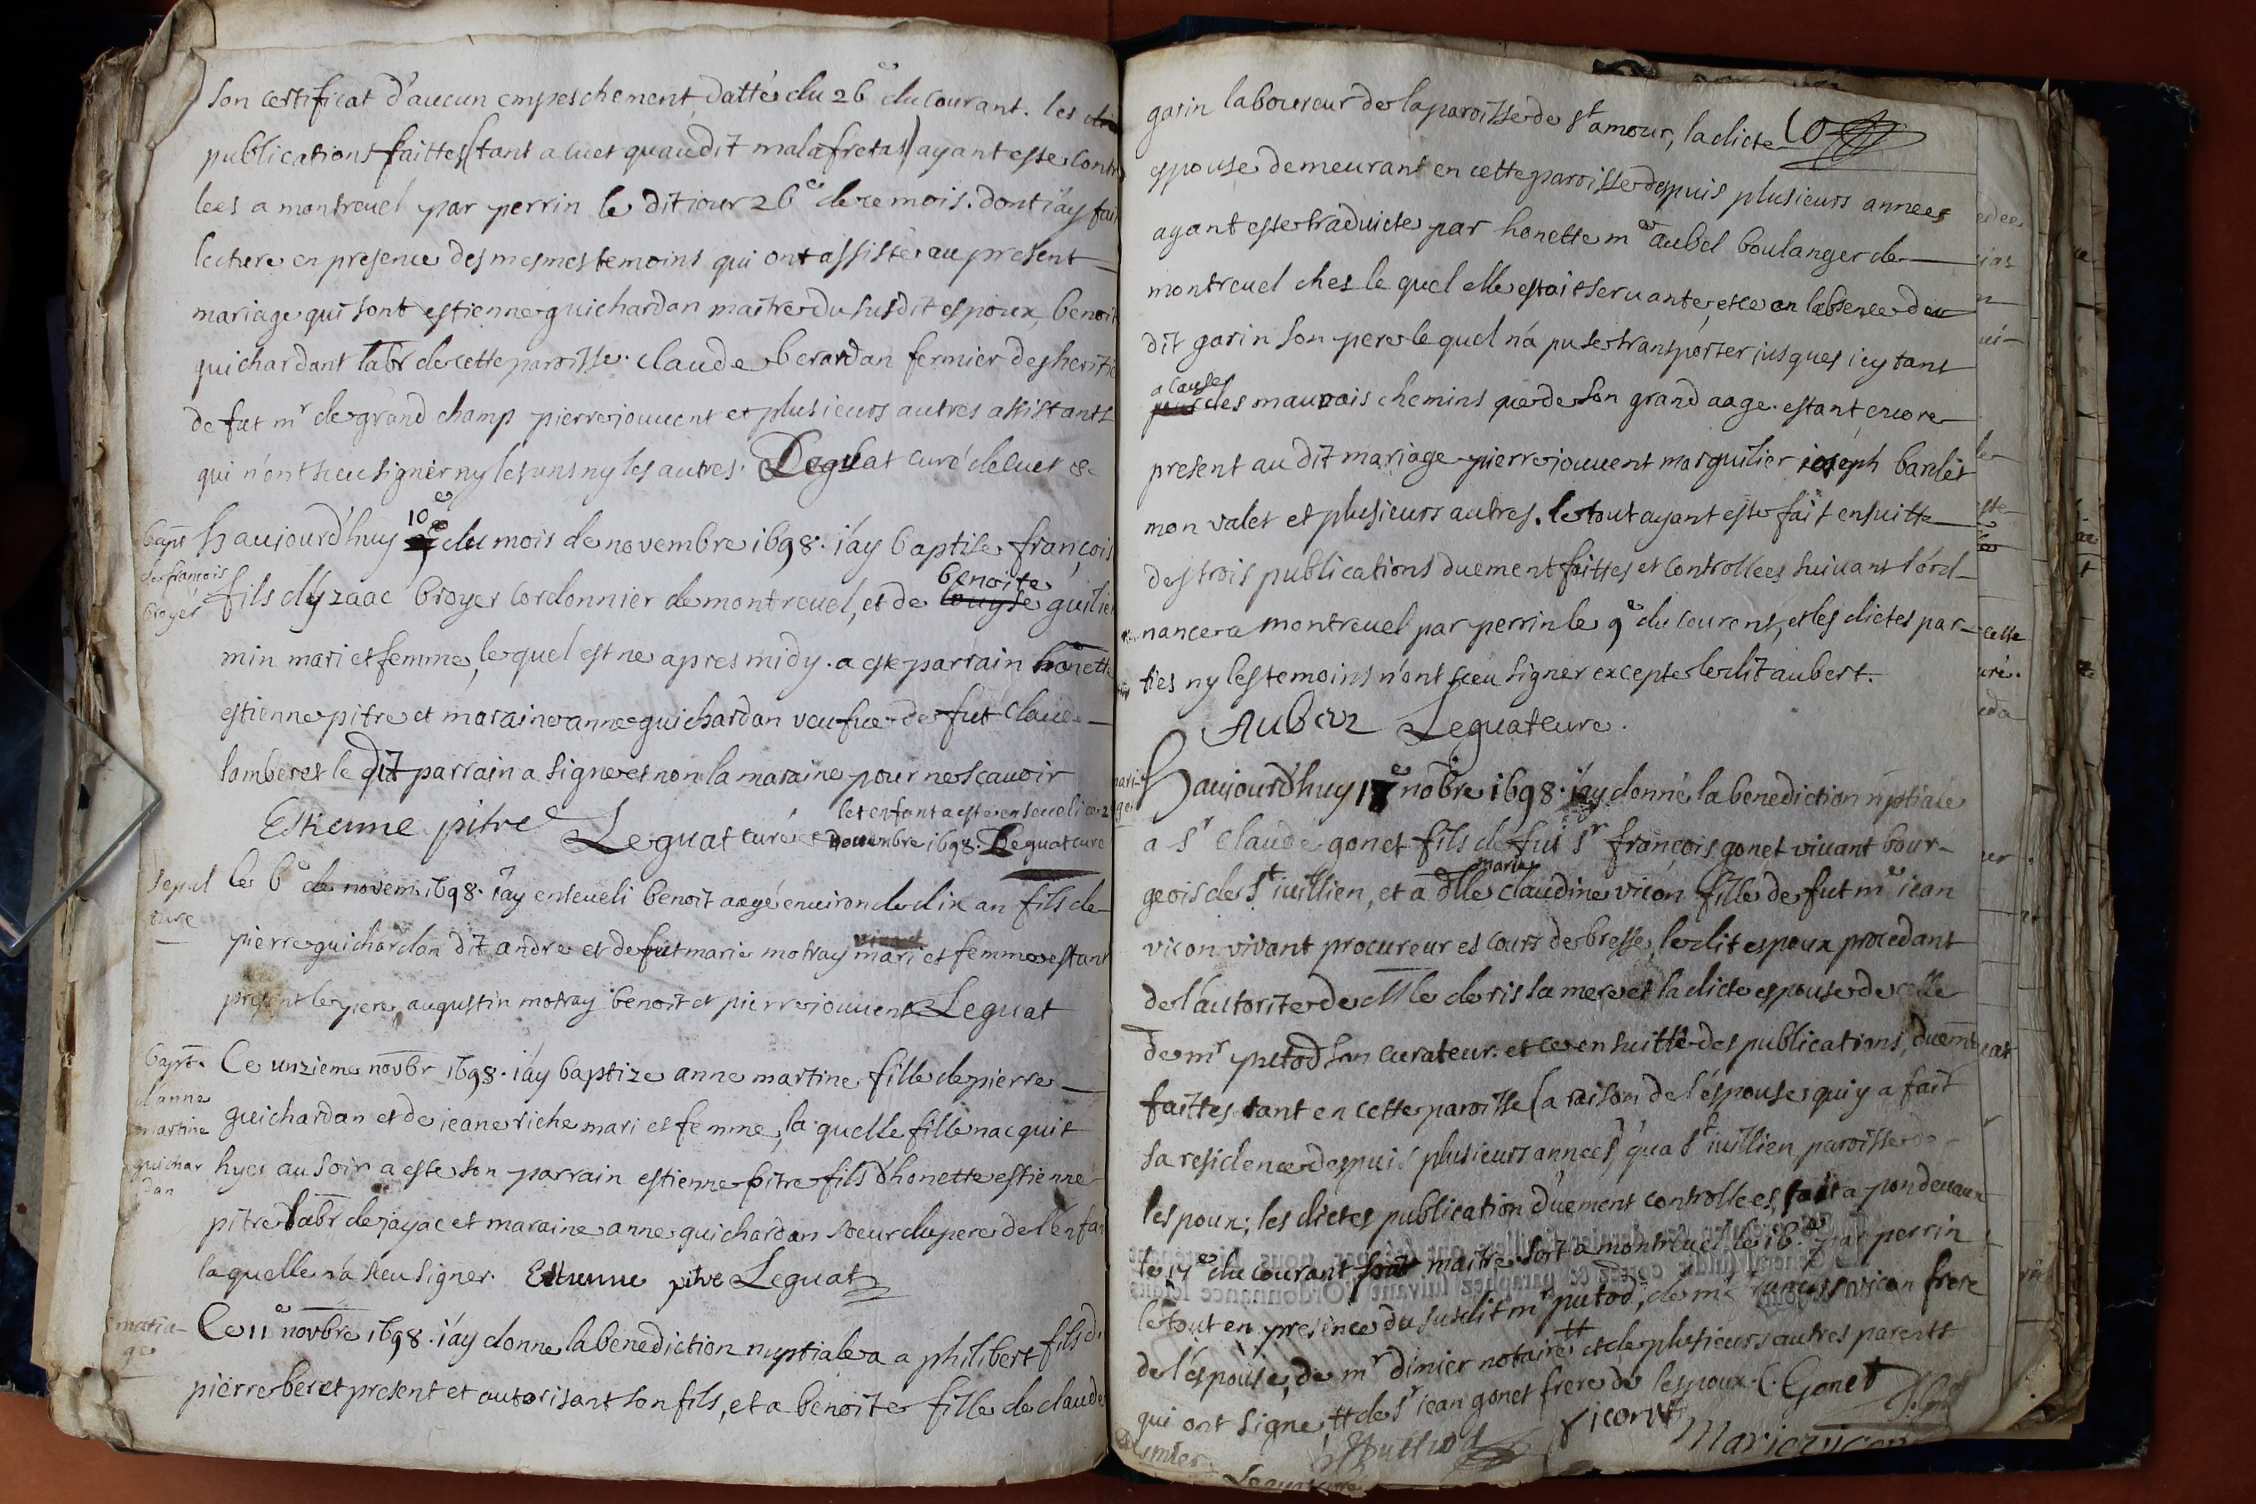 son certificat d'aucun empeschement datté du 26e du courant. les
publications faittes (tant a cuet quaudit malafretas) ayant esté contr
lees a montreuel par perrin le dit iour 26e de ce mois. dont iay fait
lecture en presence des mesmes temoins qui ont assisté au present
mariage qui sont estienne guichardan maitre du susdit espoux, benoit
guichardant labr de cette paroisse. claude berardan fermier des heriti
de fut mr de grand champ pierre iouuent et plusieurs autres assistants
qui n'ont sceu signer ny les uns ny les autres. Leguat curé de cuet &c
bapt
de françois
broyer
haujourd'huy 10e du mois de novembre 1698. i'ay baptise françois
fils d'yzaac broyer cordonnier de montreuel, et de benoite guilie
min mari et femme, le quel est ne apres midy. a este parrain honette
estienne pitre et maraine anne guichardan veufue de fut claude
lamberet le dit parrain a signe et non la maraine pour ne scauoir
Estienne pitre Leguat curé
let enfant a este enseueli ce 2
nouembre 1698. Leguat curé
sepul
ture
le 6e de novem. 1698. i'ay enseueli benoit aagé enuiron de dix an fils de
pierre guichardan dit andre et de fut marie motray mari et femme estant
present le pere, augustin motray benoit et pierre iouuent Leguat
bapt.
d'anne
martine
guichar
dan
Ce unzieme novbr 1698. i'ay baptize anne martine fille de pierre
guichardan et de ieane riche mari et femme, la quelle fille nacquit
hyer au soir a este son parrain estienne pitre fils d'honette estienne
pitre labr de jayac et maraine anne guichardan soeur du pere de l'enfan
laquelle n'a sceu signer. Estienne pitre Leguat
maria
ge
Ce 11e novbre 1698. i'ay donne la benediction nuptiale a a philibert fils de
pierre beret present et autorisant son fils, et a benoite fille de claude
garin laboureur de la paroisse de st amour, la dicte
espouse demeurant en cette paroisse depuis plusieurs annees
ayant este traduicte par honette me aubel boulanger de
montreuel ches le quel elle estoit seruante, et ce en l'absence du
dit garin son pere le quel n'a pu se transporter jusques icy tant
a cause
des mauvais chemins que de son grand aage. estant encore
present au dit mariage pierre jouuent marguilier ioseph bardet
mon valet et plusieurs autres. le tout ayant este fait ensuitte
des trois publications duement faittes et controllees suiuant l'ord
nance a montreuel par perrin le 9e du courent, et les dictes par
ties ny les temoins n'ont sceu signer excepte le dit aubert.
Aubert Leguat cure.
mari
ge
haujourd'huy 18e nobre 1698. i'ay donné la benediction nuptiale
a Sr Claude gonet fils de fut Sr françois gonet viuant bour
geois de St iullien, et a dlle marie claudine vicon fille de fut me iean
vicon vivant procureur es cours de bresse, le dit espoux procedant
de l'autorite de dlle de ris sa mere et la dicte espouse de celle
de mr putod son curateur. et ce ensuitte des publications, duemt
faittes tant en cette paroisse (a raison de l'espouse qui y a fait
sa residence depuis plusieurs annees) qu'a St iullien paroisse de
lespoux; les dictes publication duement controllees, soit a pondeuaux
le 17e du courant par maitre soit a montreuel le 16e par perrin
le tout en presence du susdit mr putod, de me vicon frere
de l'espouse, de mr dimier notaire # et de plusieurs autres parents
qui ont signe, # de Sr iean gonet frere de lespoux. C. Gonet
Vicon Marie vicon
Dimier Puttod
Leguat cure